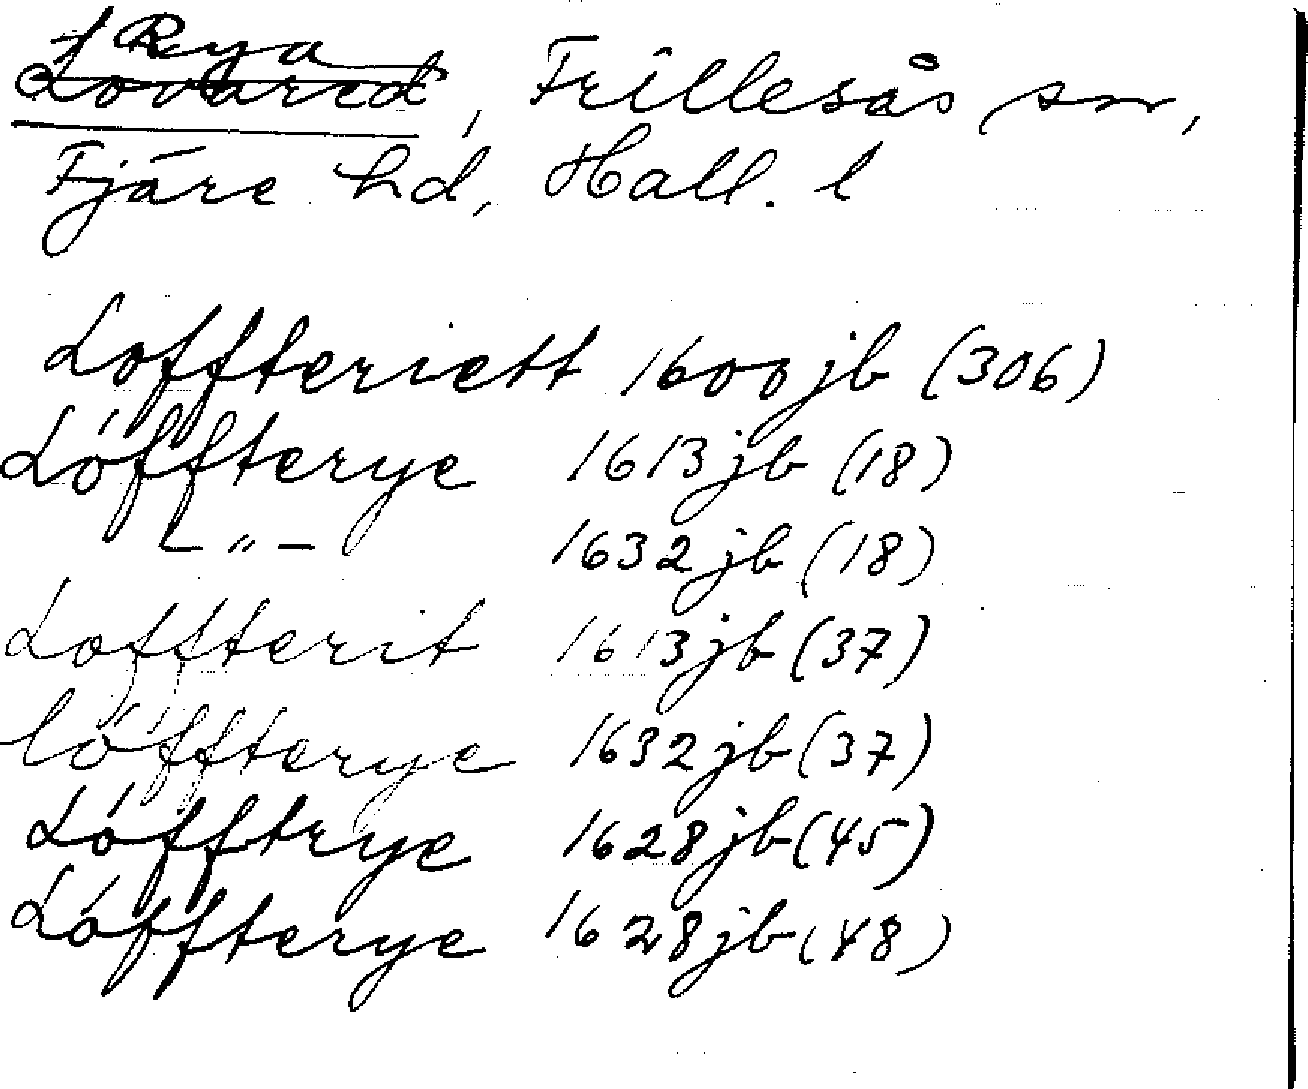 † Rya
Lovared, Frillesås sn,
Fjäre hd, Hall. l
Loffteriett 1600 jb (306)
Lóffterye 1613 jb (18)
– " – 1632 jb (18)
Loffterit 1613 jb (37)
lóffterye 1632 jb (37)
Lófftrye 1628 jb (45)
Lóffterye 1628 jb (48)